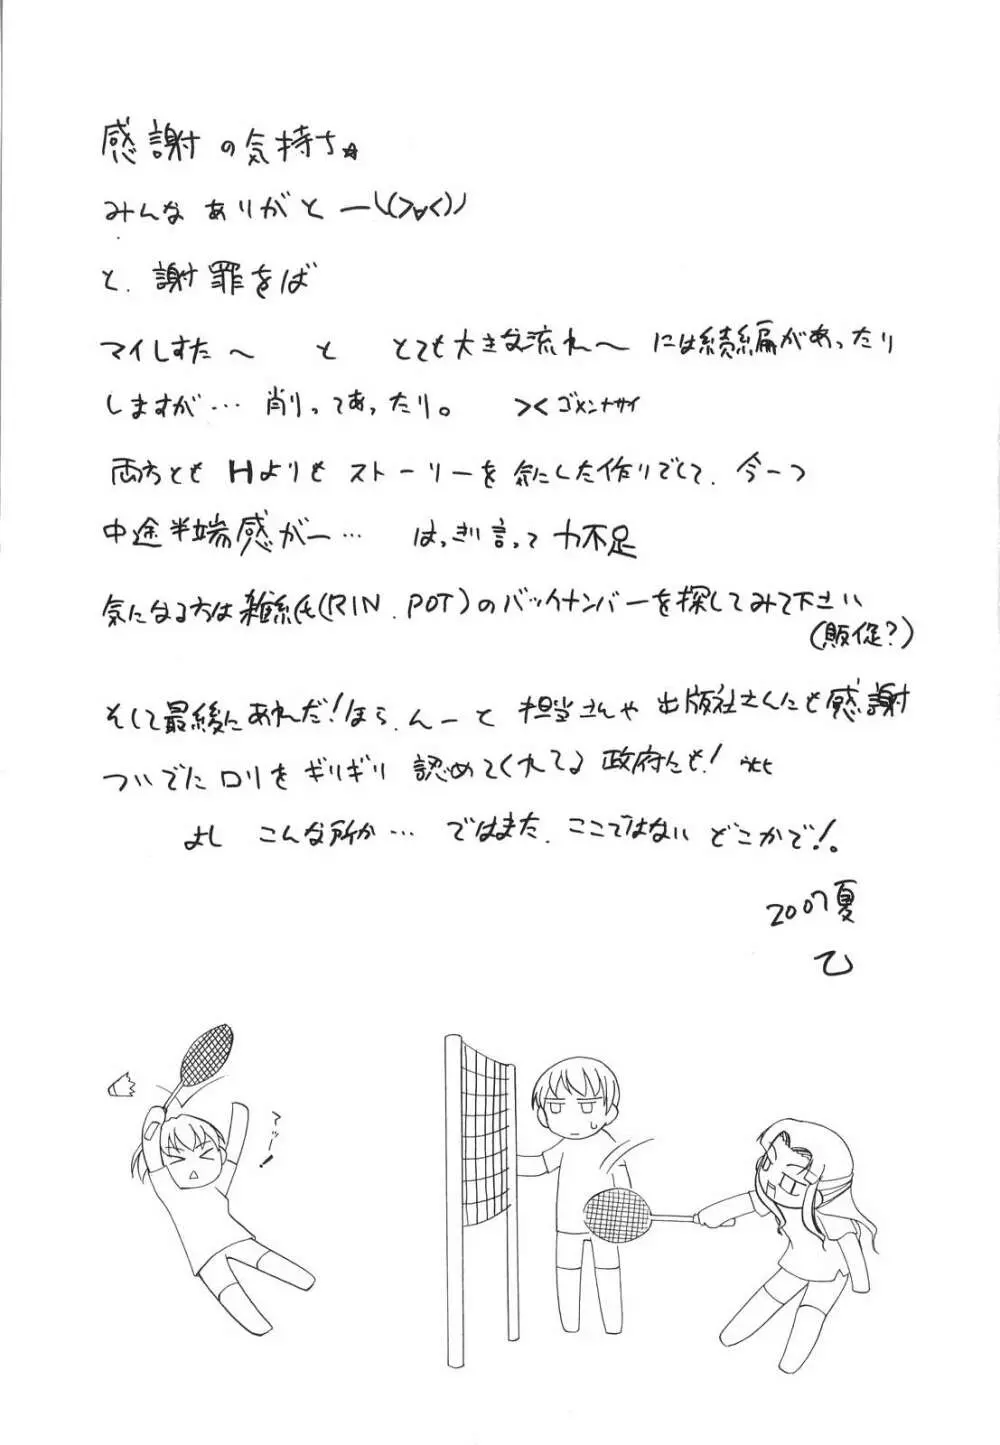 感謝の気持ち☆
みんなありがとー\(>∀<)ノ
と、謝罪をば
マイしすた～ と とても大きな流れ～ には続編があったり
しますが… 削ってあったり。 >< ゴメンナサイ
両方とも Hよりも ストーリーを気にした作りでして、今一つ
中途半端感がー… はっきり言って力不足
気になる方は雑誌(RIN、POT)のバックナンバーを探してみて下さい
(販促?)
そして最後にあれだ!ほら、んーと 担当さんや 出版社さんにも感謝
ついでにロリをギリギリ 認めてくれてる 政府にも!
よし こんな所か… ではまた、ここではない どこかで!。
2007夏
乙
てぃー!